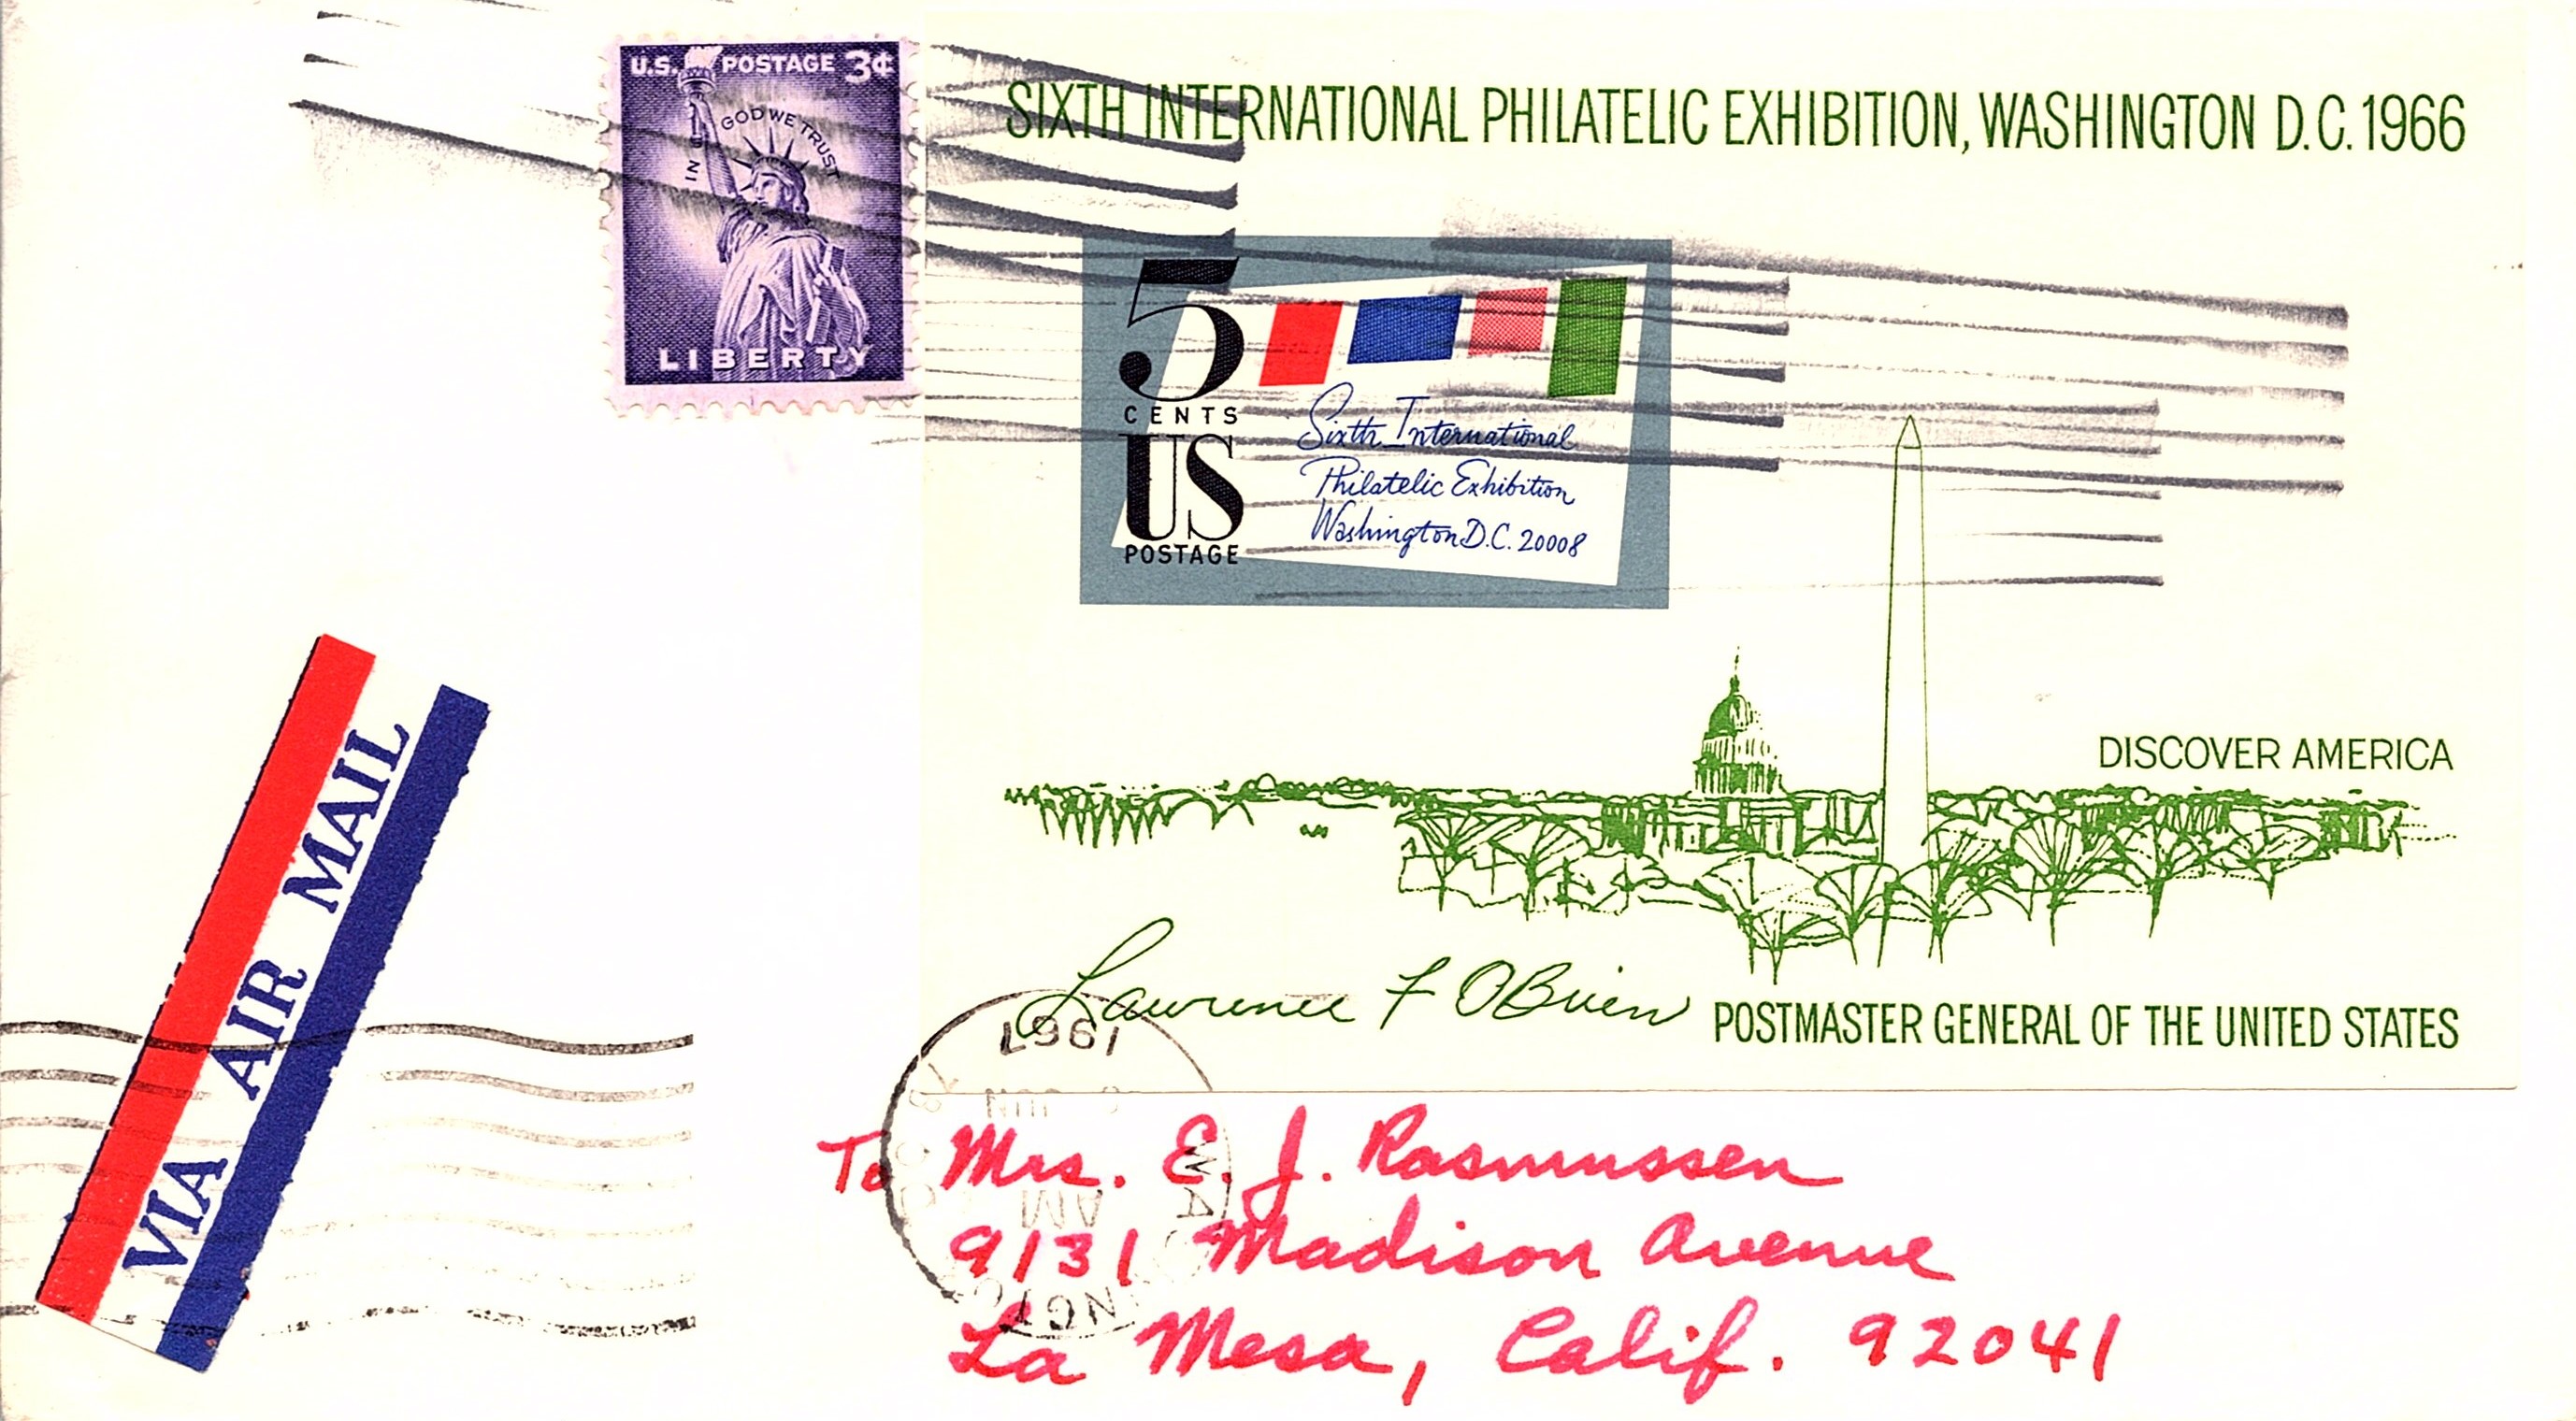 U.S. POSTAGE 3¢
IN GOD WE TRUST
LIBERTY
SIXTH INTERNATIONAL PHILATELIC EXHIBITION, WASHINGTON D.C. 1966
5
CENTS
US
POSTAGE
Sixth International
Philatelic Exhibition
Washington D.C. 20008
DISCOVER AMERICA
Lawrence F O'Brien
POSTMASTER GENERAL OF THE UNITED STATES
VIA AIR MAIL
1967
JUN
AM
To Mrs. E. J. Rasmussen
9131 Madison Avenue
La Mesa, Calif. 92041